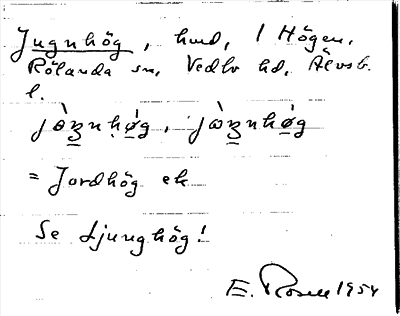 Jugnhög, hmd, 1 Högen,
Rölanda sn, Vedbo hd, Älvsb.
l.
= Jordhög ek
Se Ljunghög!
E. Rosell 1954